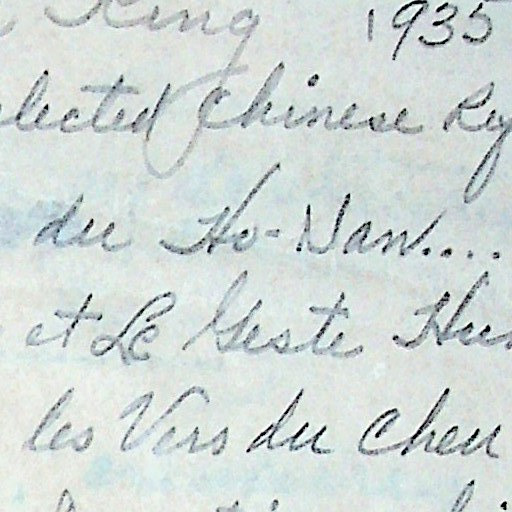 King 1935
elected Chinese
du Ho-Nan....
et Le Geste
les Vers du Cheu